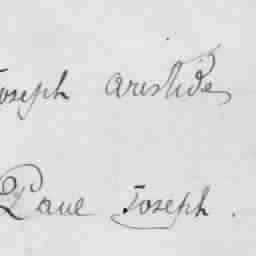 Joseph aristide
Paul Joseph.